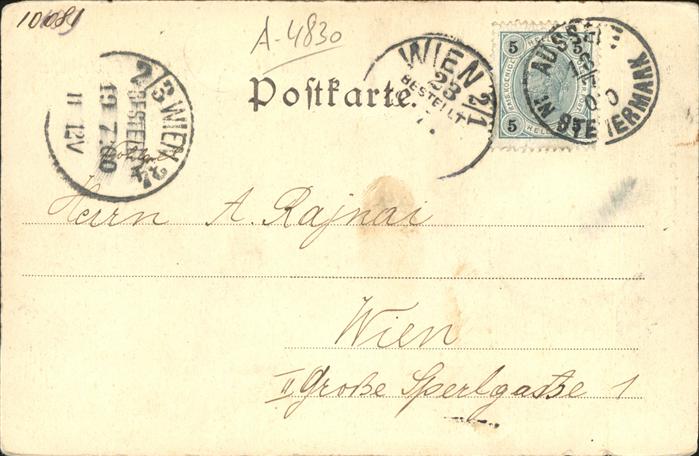 10081
A-4830
Postkarte.
WIEN 2/1
23
BESTELLT
AUSSEE
IN STEIERMARK
5 5
5 5
2/3 WIEN
BESTELLT
19 7 00
11 12V
Herrn A. Rajnai
Wien
II Große Sperlgasse 1